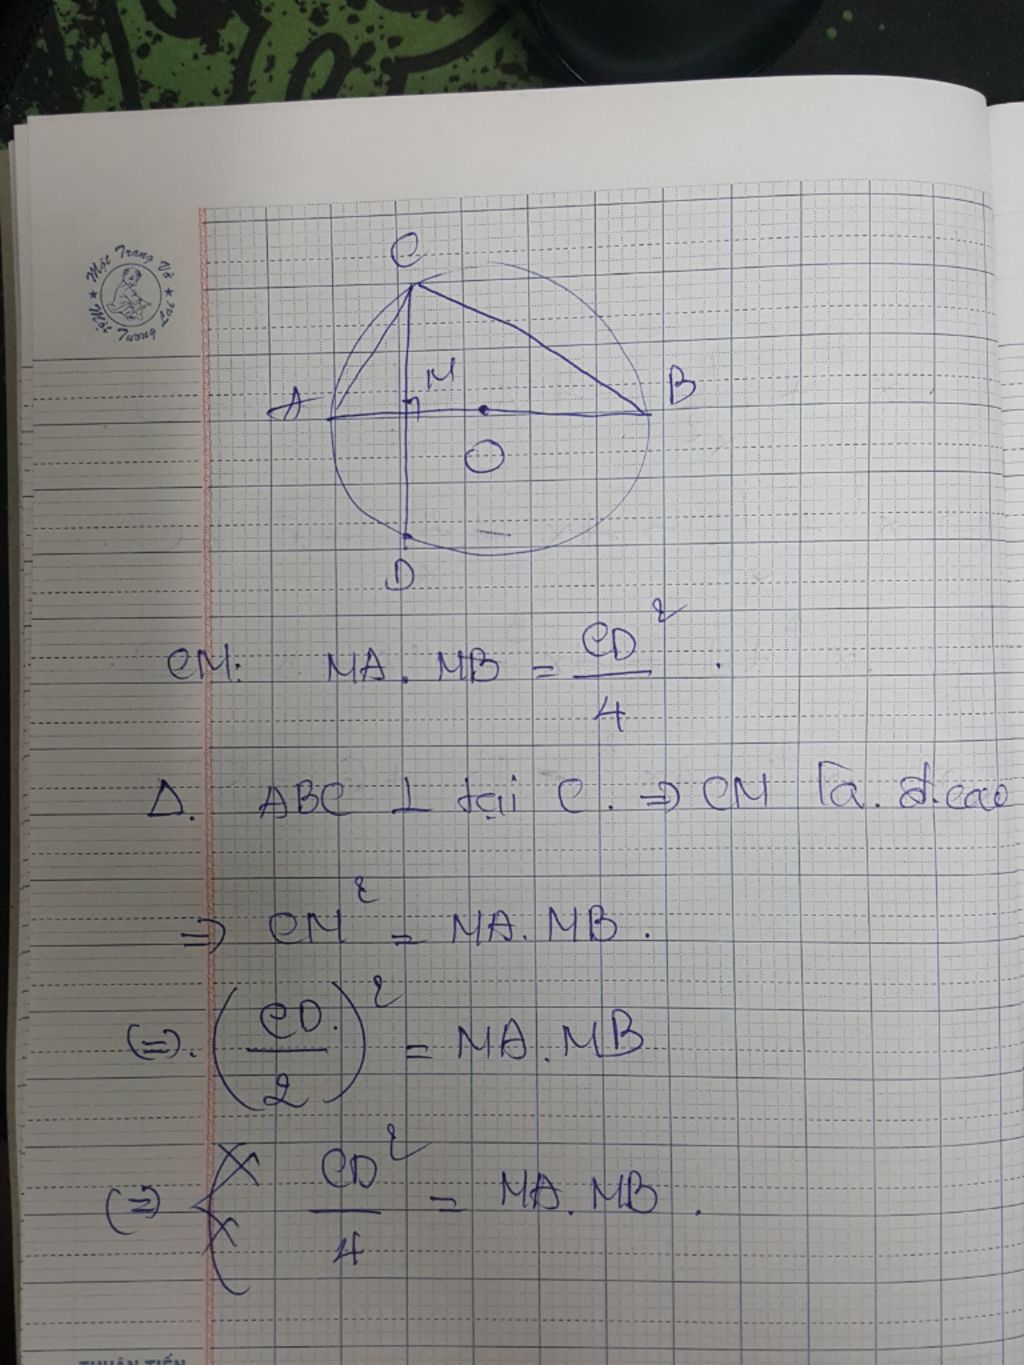 Một Trang Vở
Một Tương Lai
C
M
A
B
O
D
CM: MA . MB = CD² / 4 .
Δ. ABC ⊥ tại C. ⇒ CM là. đ.cao
⇒ CM² = MA. MB .
(=). (CD. / 2)² = MA. MB
(=) CD² / 4 = MA. MB .
THUẬN TIẾN